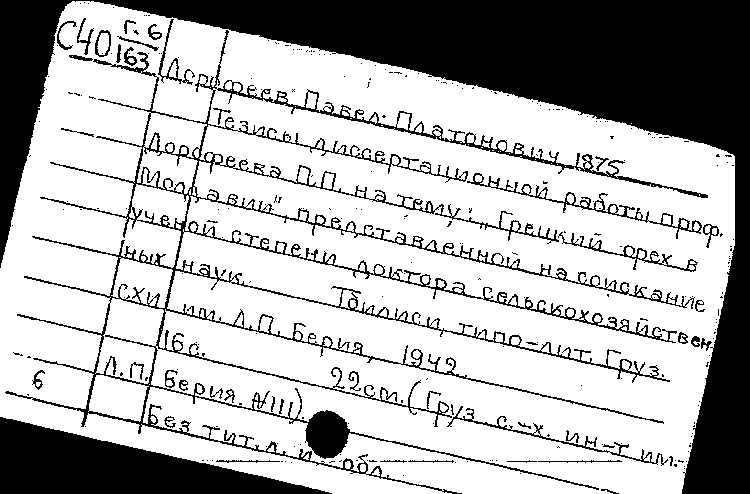 С40 Г.6
163
Дорофеев, Павел Платонович, 1875
Тезисы диссертационной работы проф.
Дорофеева П.П. на тему: „Грецкий орех в
Молдавии", представленной на соискание
ученой степени доктора сельскохозяйствен
ных наук. Тбилиси, типо-лит. Груз.
СХИ им. Л.П. Берия, 1942.
16с. 22см. (Груз. с.-х. ин-т им.
Л.П. Берия. №III).
6
Без тит. л. и обл.